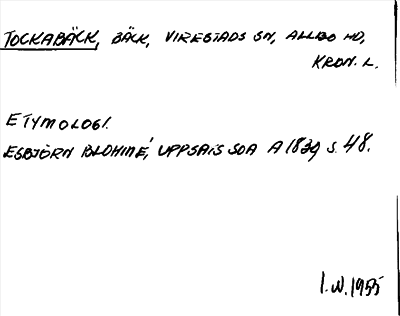 TOCKABÄCK, BÄCK, VIRESTADS SN, ALLBO HD,
KRON. L.
ETYMOLOGI.
ESBJÖRN BLOHMÉ, UPPSATS SOA A 1839 S. 48.
I.W. 1955